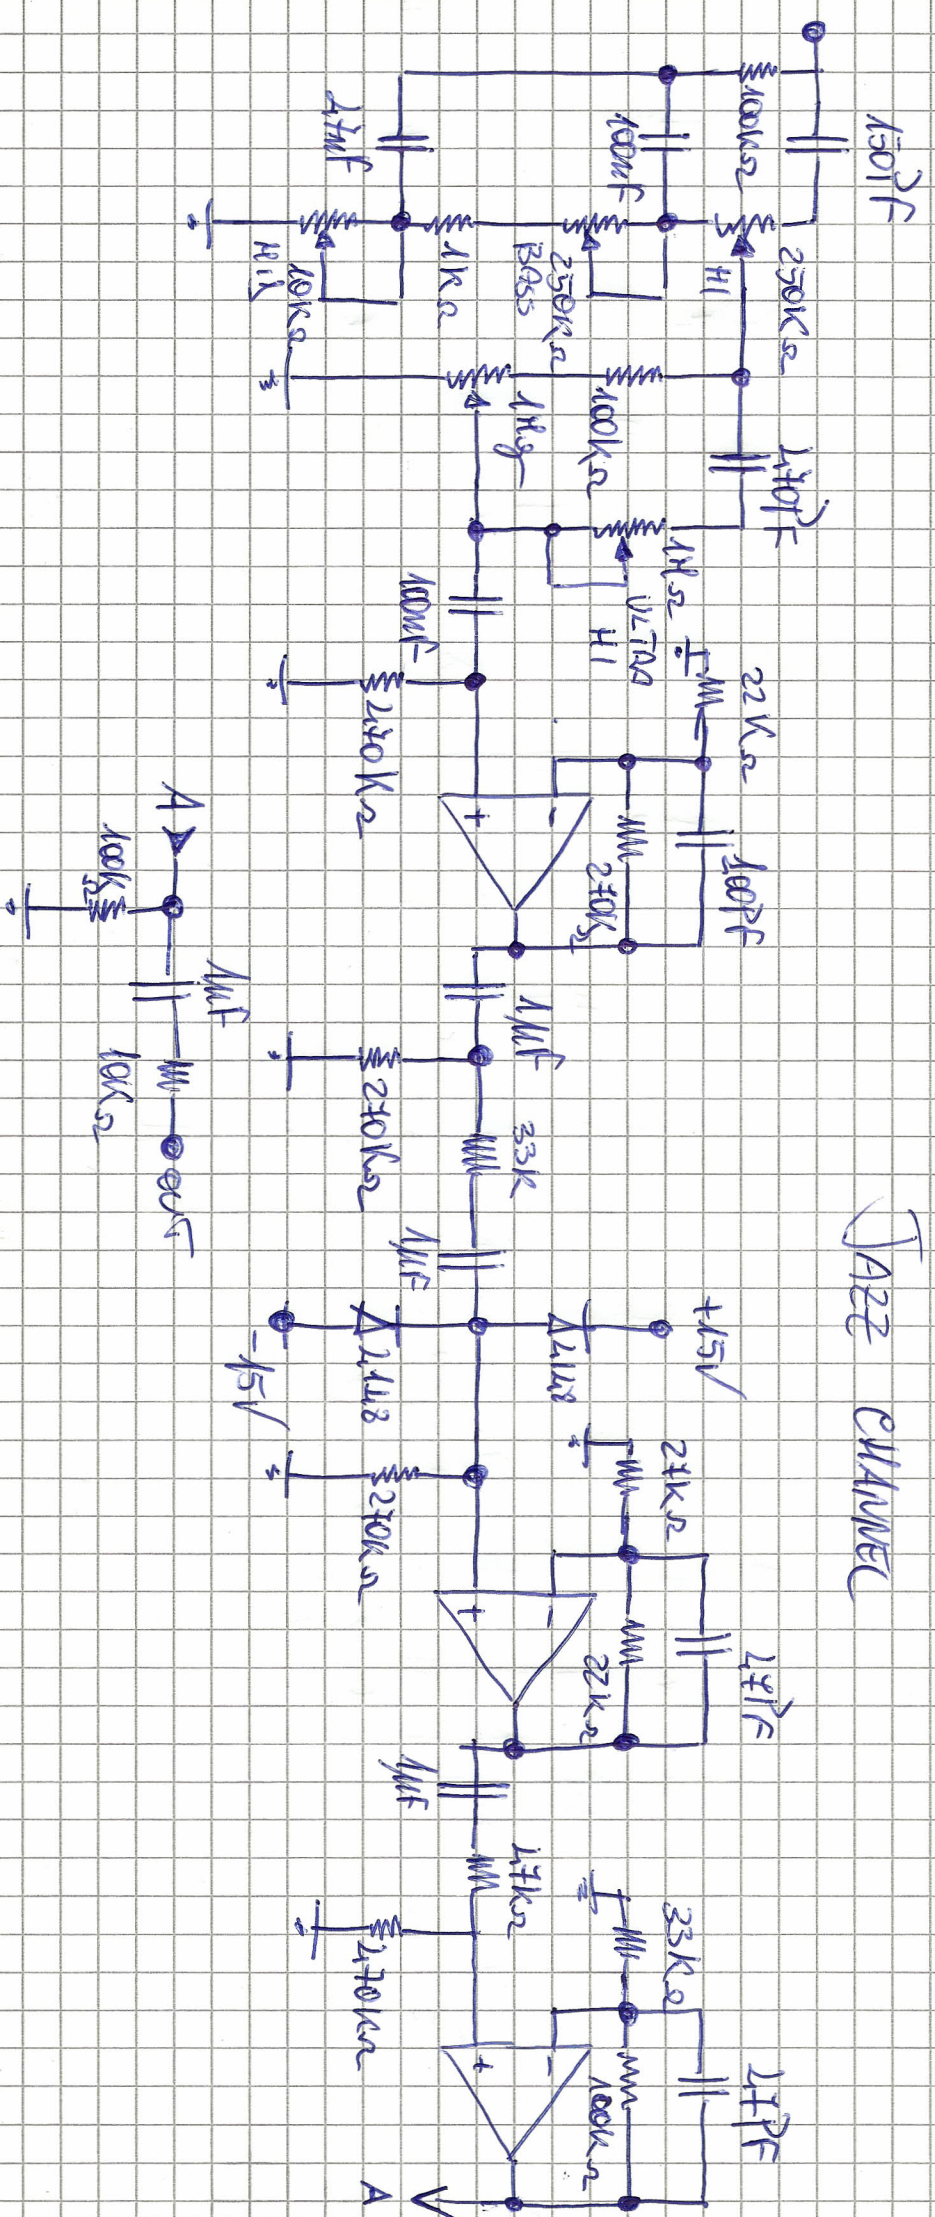 JAZZ CHANNEL
150PF
100KΩ
250KΩ
HI
100nF
47nF
250KΩ
BASS
1KΩ
10KΩ
Mid
470PF
100KΩ
1Meg
1MΩ
ULTRA
HI
100nF
470KΩ
22KΩ
100PF
270KΩ
-
+
1µF
270KΩ
33K
1µF
+15V
4148
4148
-15V
270KΩ
27KΩ
47PF
22KΩ
-
+
1µF
47KΩ
470KΩ
33KΩ
47PF
100KΩ
-
+
A
A
100K
Ω
1µF
10KΩ
OUT